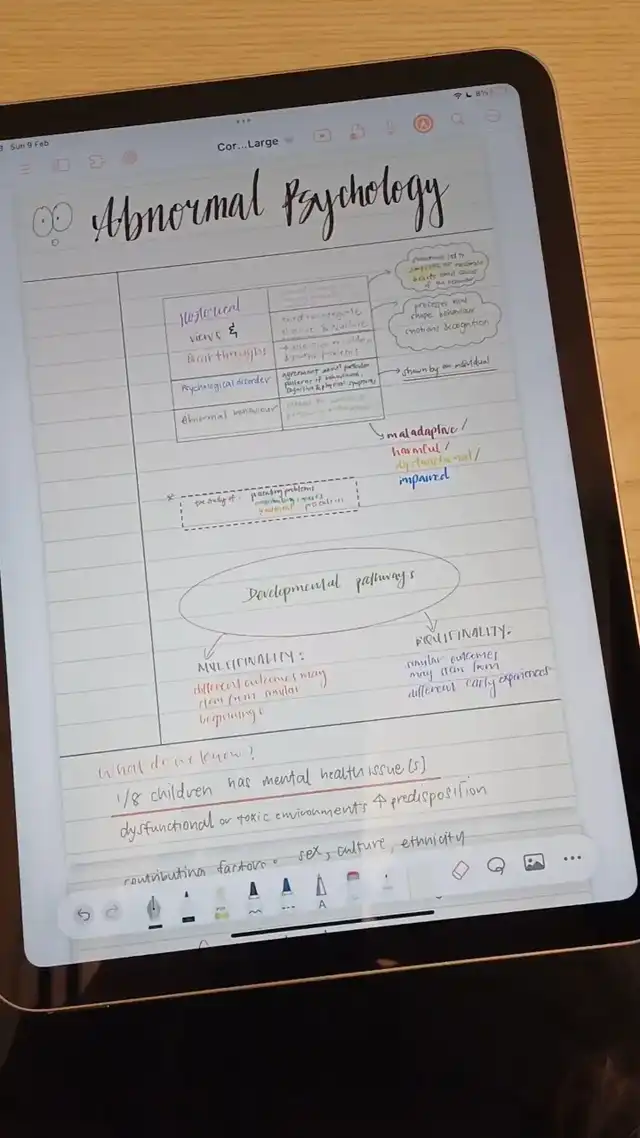 Sun 9 Feb
8%
Cor...Large
Abnormal Psychology
Historical
views &
Breakthroughs
Psychological disorder
agreement about particular
patterns of behavioural,
cognitive & physical symptoms
Abnormal behaviour
processes that
shape behaviour
emotions & cognition
shown by an individual
maladaptive/
harmful/
dysfunctional/
impaired
*
the study of:
problems
Developmental pathways
MULTIFINALITY:
different outcomes may
stem from similar
beginnings
EQUIFINALITY.
similar outcomes
may stem from
different early experiences
What do we know?
1/8 children has mental health issue(s)
dysfunctional or toxic environments ↑ predisposition
contributing factors: sex, culture, ethnicity
A